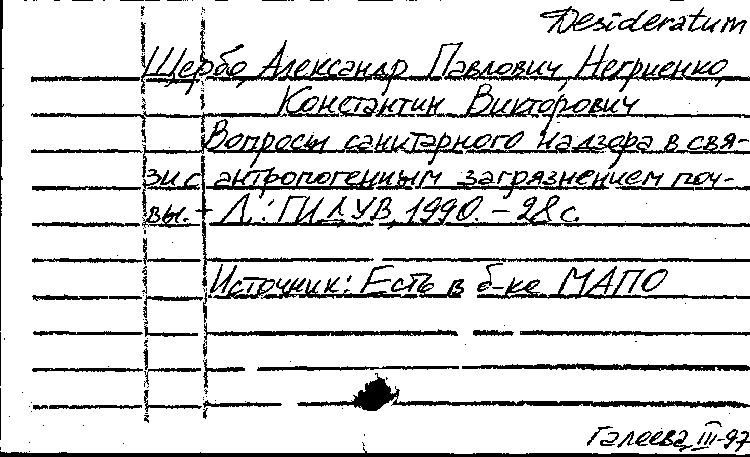 Desideratum
Щербо, Александр Павлович, Негриенко,
Константин Викторович
Вопросы санитарного надзора в свя-
зи с антропогенным загрязнением поч-
вы. - Л.: ГИДУВ, 1990. - 28 с.
Источник: Есть в б-ке МАПО
Галеева, III-97